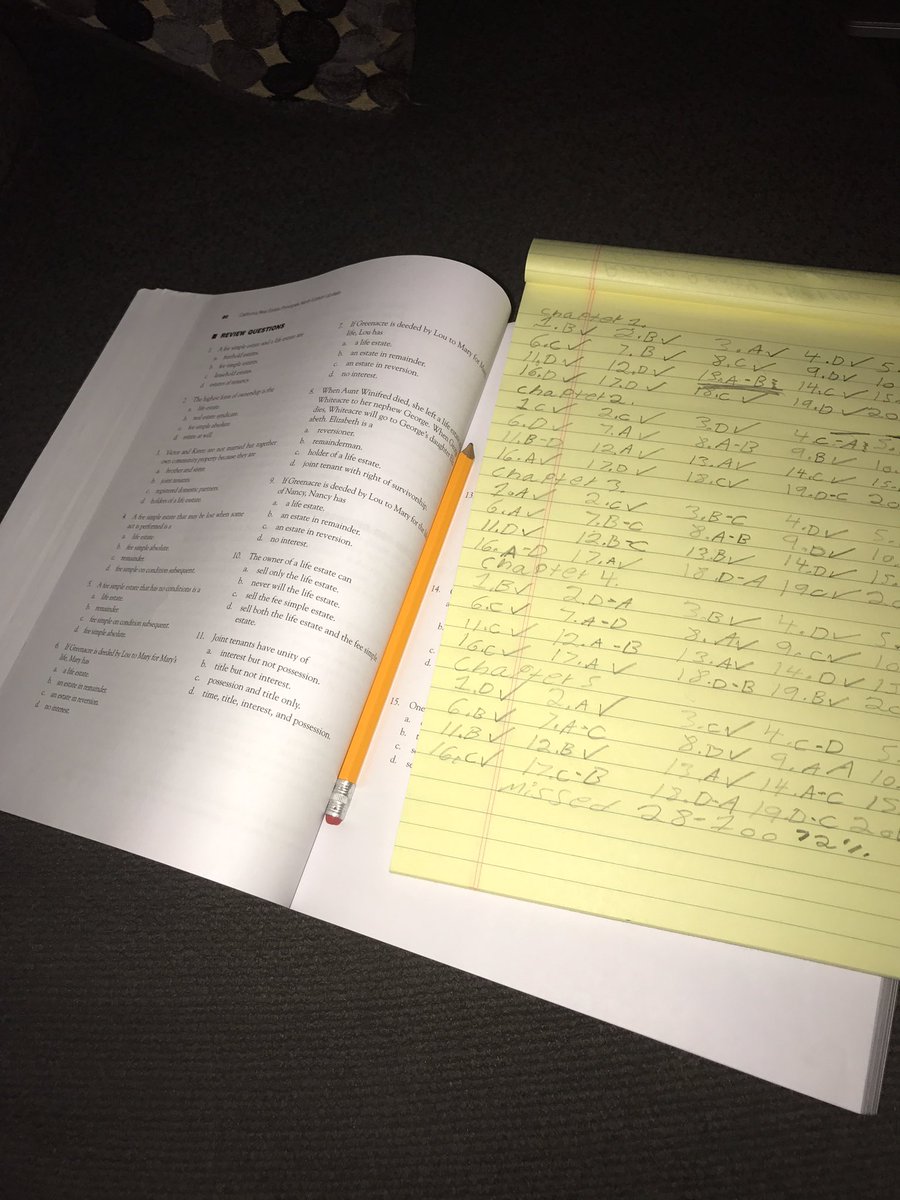 REVIEW QUESTIONS
1. A fee simple estate and a life estate are
a. freehold estates.
b. fee simple estates.
c. leasehold estates.
d. estates of tenancy.
2. The highest form of ownership is the
a. life estate.
b. real estate syndicate.
c. fee simple absolute.
d. estate at will.
3. Victor and Karen are not married but together
own community property because they are
a. brother and sister.
b. joint tenants.
c. registered domestic partners.
d. holders of a life estate.
4. A fee simple estate that may be lost when some
act is performed is a
a. life estate.
b. fee simple absolute.
c. remainder.
d. fee simple on condition subsequent.
5. A fee simple estate that has no conditions is a
a. life estate.
b. remainder.
c. fee simple on condition subsequent.
d. fee simple absolute.
6. If Greenacre is deeded by Lou to Mary for Mary's
life, Mary has
a. a life estate.
b. an estate in remainder.
c. an estate in reversion.
d. no interest.
7. If Greenacre is deeded by Lou to Mary for
life, Lou has
a. a life estate.
b. an estate in remainder.
c. an estate in reversion.
d. no interest.
8. When Aunt Winifred died, she left a life estate
Whiteacre to her nephew George. When
dies, Whiteacre will go to George's daughter
abeth. Elizabeth is a
a. reversioner.
b. remainderman.
c. holder of a life estate.
d. joint tenant with right of survivorship.
9. If Greenacre is deeded by Lou to Mary for the
of Nancy, Nancy has
a. a life estate.
b. an estate in remainder.
c. an estate in reversion.
d. no interest.
10. The owner of a life estate can
a. sell only the life estate.
b. never will the life estate.
c. sell the fee simple estate.
d. sell both the life estate and the fee simple
estate.
11. Joint tenants have unity of
a. interest but not possession.
b. title but not interest.
c. possession and title only.
d. time, title, interest, and possession.
13.
14.
a
b.
c.
d.
15. One
a.
b.
c.
d.
Chapter 1.
1. B✓ 2. B✓ 3. A✓ 4. D✓ 5.
6. C✓ 7. B✓ 8. C✓ 9. D✓ 10
11. D✓ 12. D✓ 13. A-B 14. C✓ 15.
16. D✓ 17. D✓ 18. C✓ 19. D✓ 20
Chapter 2.
1. C✓ 2. C✓ 3. D✓ 4. C-A 5.
6. D✓ 7. A✓ 8. A-B 9. B✓ 10.
11. B-D 12. A✓ 13. A✓ 14. C✓ 15.
16. A✓ 17. D✓ 18. C✓ 19. D-C 20
Chapter 3.
1. A✓ 2. C✓ 3. B-C 4. D✓
6. A✓ 7. B-C 8. A-B 9. D✓ 10
11. D✓ 12. B-C 13. B✓ 14. D✓ 15.
16. A-D 7. A✓ 18. D-A 19 C✓ 20
Chapter 4.
1. B✓ 2. D-A 3. B✓ 4. D✓ 5.
6. C✓ 7. A-D 8. A✓ 9. C✓ 10
11. C✓ 12. A-B 13. A✓ 14. D✓ 15
16. C✓ 17. A✓ 18. D-B 19. B✓ 20
Chapter 5
1. D✓ 2. A✓ 3. C✓ 4. C-D 5.
6. B✓ 7. A-C 8. D✓ 9. A A 10.
11. B✓ 12. B✓ 13. A✓ 14. A-C 15
16. C✓ 17. C-B 18. D-A 19. D-C 20
Missed 28-100 72%.